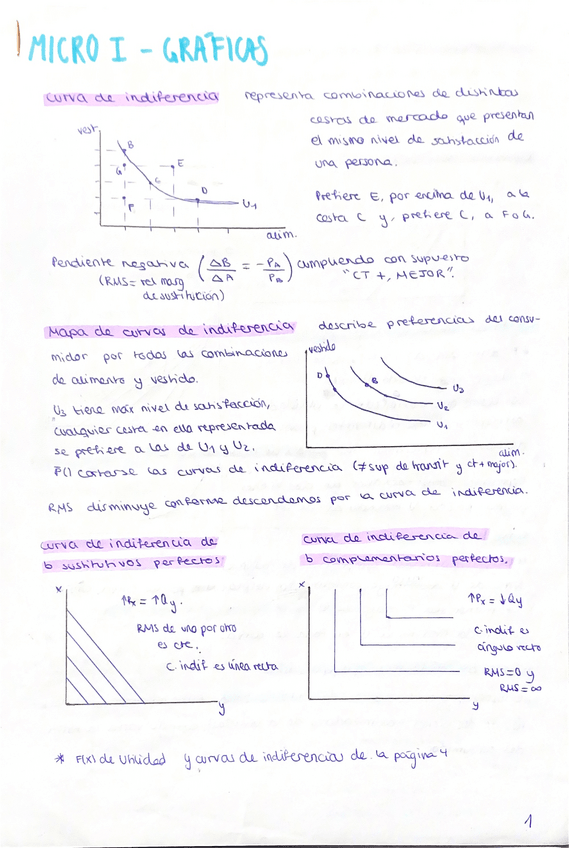 MICRO I - GRÁFICAS
curva de indiferencia representa combinaciones de distintas
cestas de mercado que presentan
el mismo nivel de satisfacción de
una persona.
Prefiere E, por encima de U₁, a la
cesta C y, prefiere C, a F o G.
vest.
B
G
E
C
F
D
U₁
alim.
Pendiente negativa (ΔB/ΔA = -PA/PB) cumpliendo con supuesto
(RMS = rel marg "CT +, MEJOR".
de sustitución)
Mapa de curvas de indiferencia describe preferencias del consu-
midor por todas las combinaciones
de alimento y vestido.
U₃ tiene máx nivel de satisfacción,
cualquier cesta en ella representada
se prefiere a las de U₁ y U₂.
vestido
D
B
U₃
U₂
U₁
alim.
cortarse las curvas de indiferencia (≠ sup de transit y ct + mejor).
RMS disminuye conforme descendemos por la curva de indiferencia.
curva de indiferencia de
b sustitutivos perfectos
x
↑Px = ↑Qy.
RMS de uno por otro
es cte.
C. indif es línea recta
y
curva de indiferencia de
b complementarios perfectos.
x
↑Px = ↓Qy
C. indif es
ángulo recto
RMS = 0 y
RMS = ∞
y
* F(x) de Utilidad y curvas de indiferencia de la página 4
1